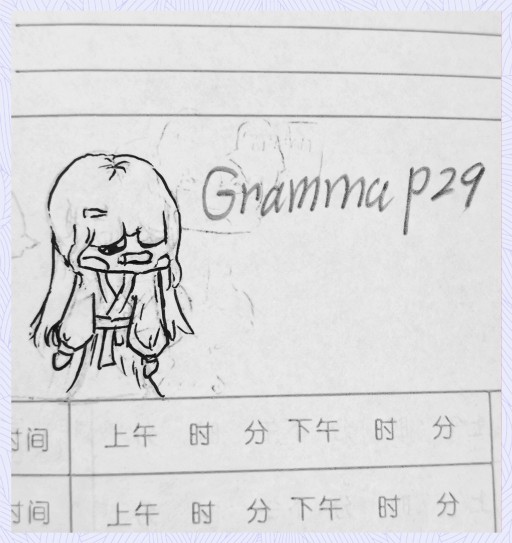 Gramma p29
时间 上午 时 分 下午 时 分
时间 上午 时 分 下午 时 分